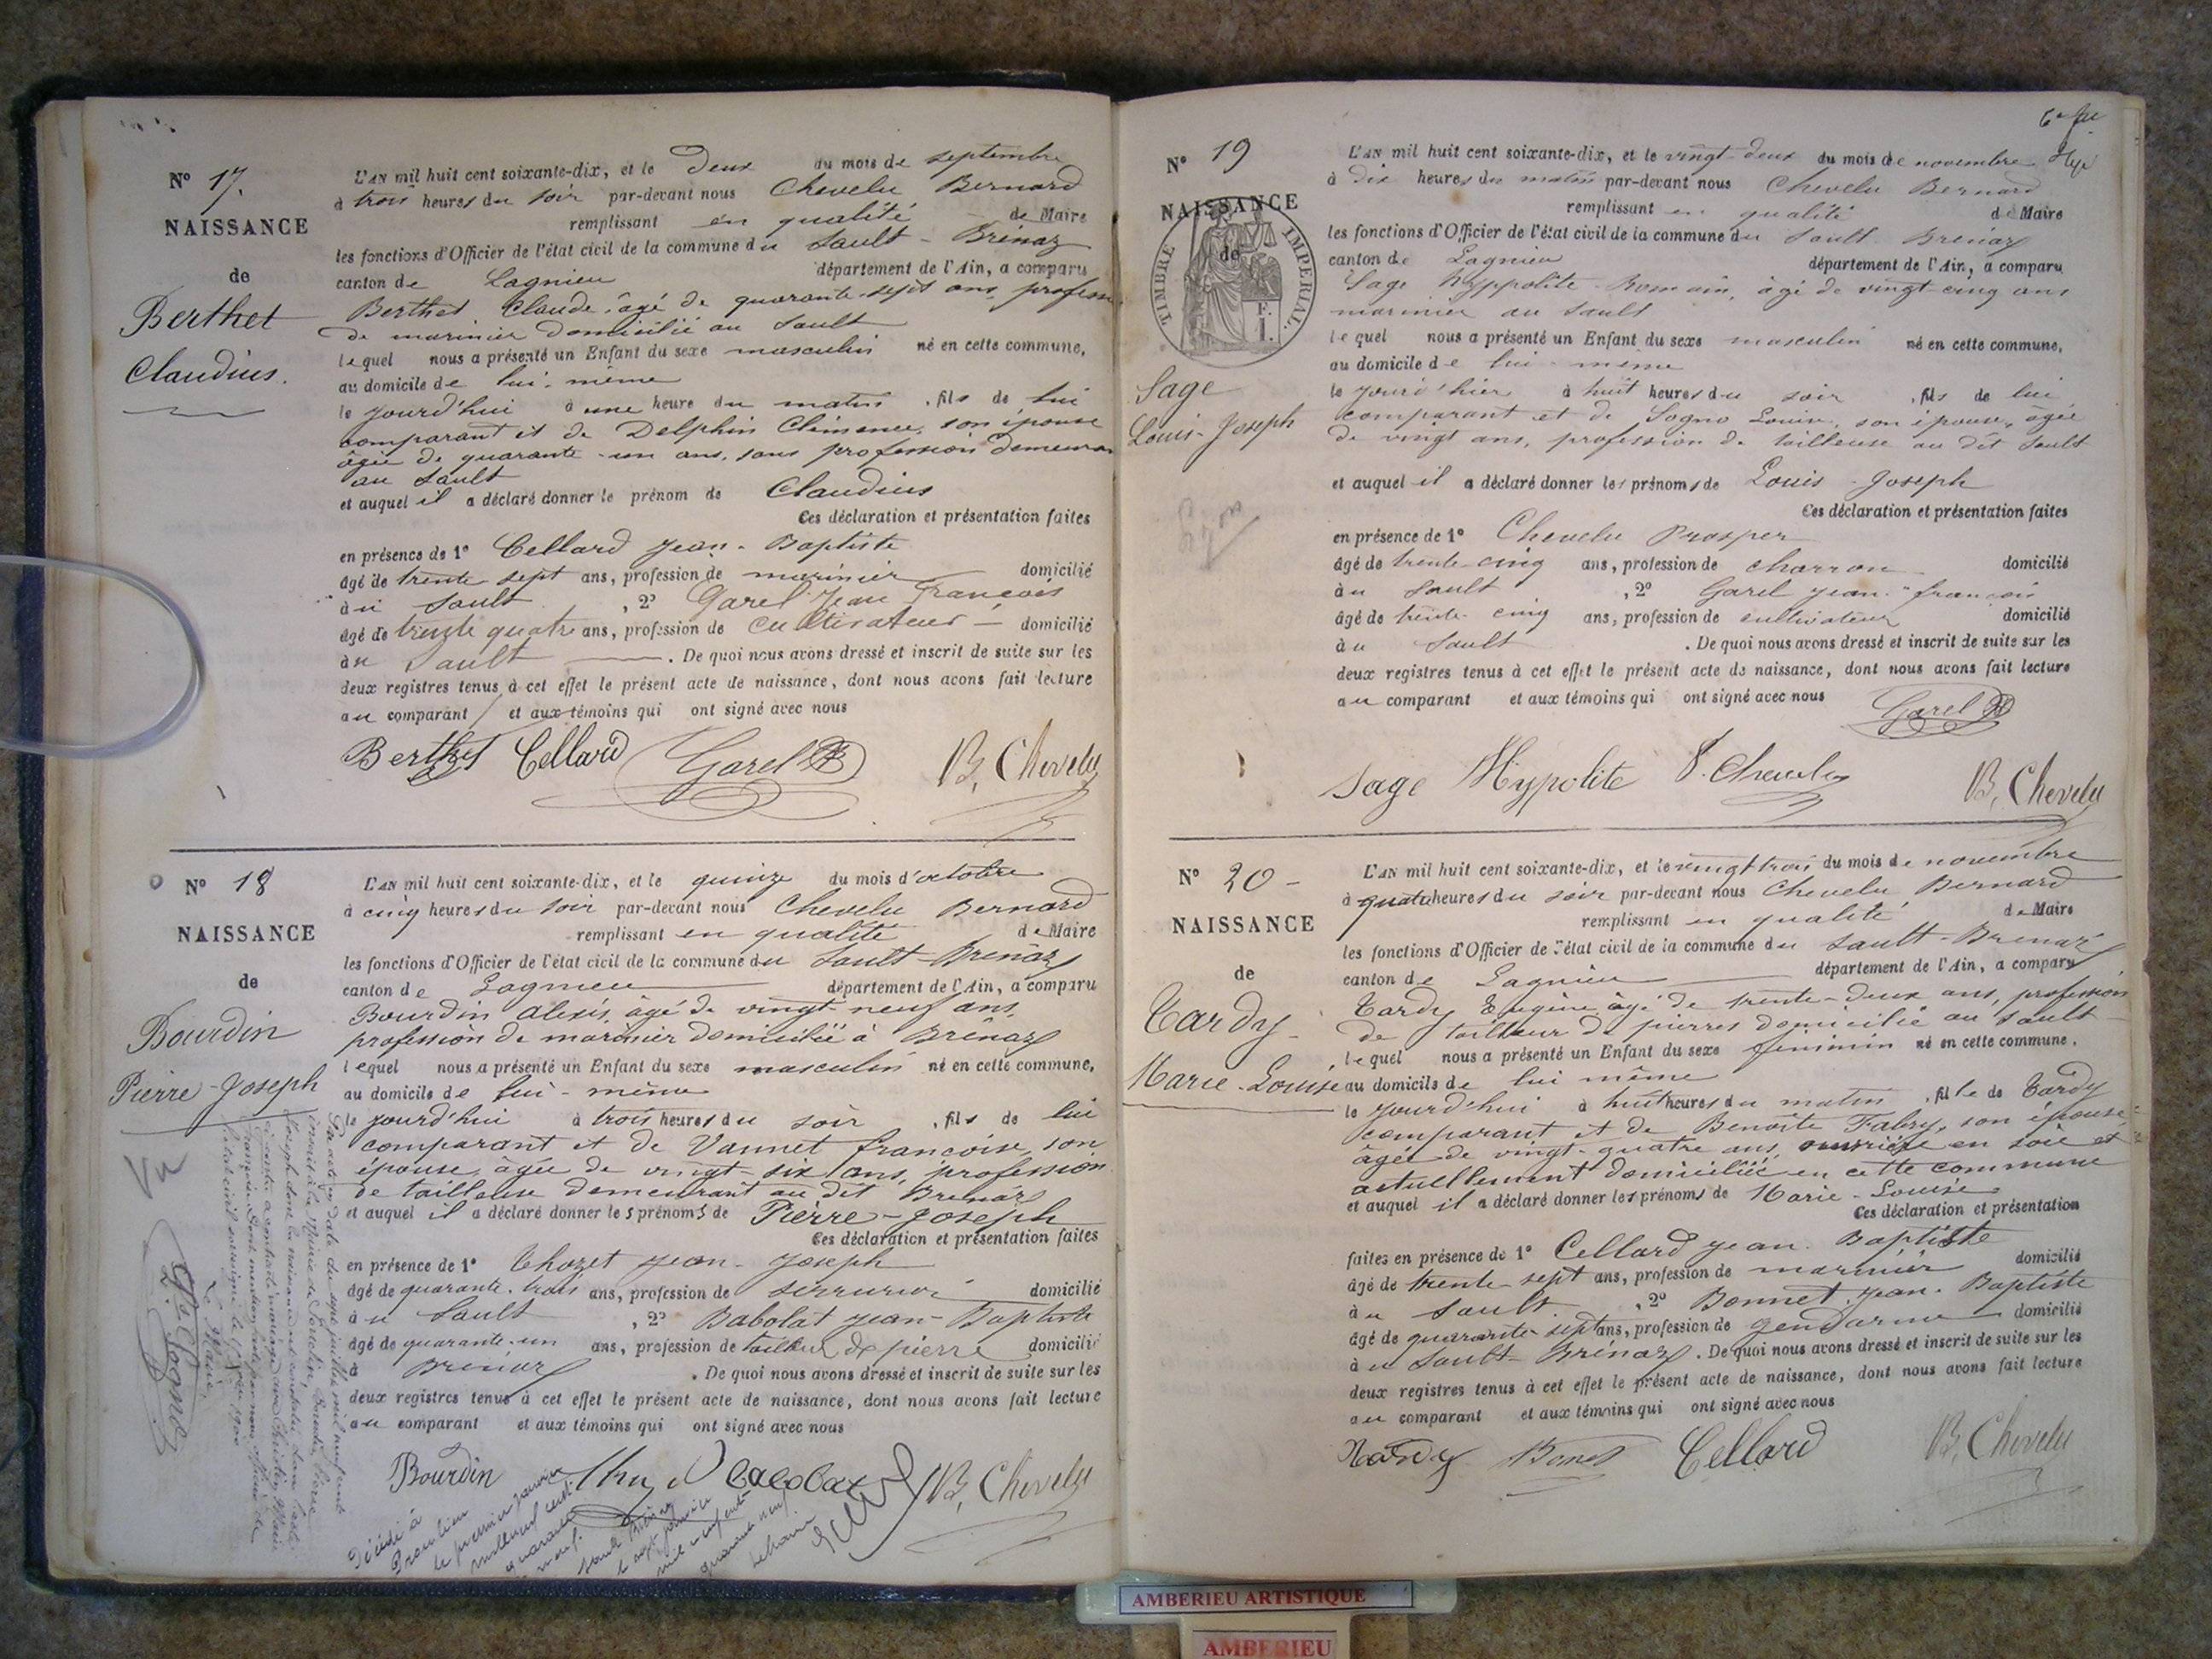 N° 17.
NAISSANCE
de
Berthet
Claudius.
L'AN mil huit cent soixante-dix, et le Deux du mois de septembre
à trois heures du soir par-devant nous Chevelu Bernard
remplissant en qualité de Maire
les fonctions d'Officier de l'état civil de la commune du Sault-Brénaz
canton de Lagnieu département de l'Ain, a comparu
Berthet Claude, âgé de quarante-sept ans, profession
de marinier domicilié au Sault
lequel nous a présenté un Enfant du sexe masculin né en cette commune,
au domicile de lui-même
le jourd'hui à une heure du matin, fils de lui
comparant et de Delphin Clémence, son épouse
âgée de quarante-un ans, sans profession demeurant
au Sault
et auquel il a déclaré donner le prénom de Claudius
Ces déclaration et présentation faites
en présence de 1° Cellard Jean-Baptiste
âgé de trente sept ans, profession de marinier domicilié
au Sault, 2° Garel Jean François
âgé de trente quatre ans, profession de cultivateur domicilié
au Sault. De quoi nous avons dressé et inscrit de suite sur les
deux registres tenus à cet effet le présent acte de naissance, dont nous avons fait lecture
au comparant et aux témoins qui ont signé avec nous
Berthet Cellard Garel B. Chevelu
N° 18
NAISSANCE
de
Bourdin
Pierre-Joseph
L'AN mil huit cent soixante-dix, et le quinze du mois d'octobre
à cinq heures du soir par-devant nous Chevelu Bernard
remplissant en qualité de Maire
les fonctions d'Officier de l'état civil de la commune du Sault-Brénaz
canton de Lagnieu département de l'Ain, a comparu
Bourdin Alexis, âgé de vingt-neuf ans,
profession de marinier domicilié à Brénaz
lequel nous a présenté un Enfant du sexe masculin né en cette commune,
au domicile de lui-même
le jourd'hui à trois heures du soir, fils de lui
comparant et de Vannet françoise, son
épouse, âgée de vingt-six ans, profession
de tailleuse demeurant au dit Brénaz
et auquel il a déclaré donner les prénoms de Pierre-Joseph
Ces déclaration et présentation faites
en présence de 1° Thozet Jean-Joseph
âgé de quarante-trois ans, profession de serrurier domicilié
au Sault, 2° Babolat Jean-Baptiste
âgé de quarante-un ans, profession de tailleur de pierre domicilié
à Brénaz. De quoi nous avons dressé et inscrit de suite sur les
deux registres tenus à cet effet le présent acte de naissance, dont nous avons fait lecture
au comparant et aux témoins qui ont signé avec nous
Bourdin B. Chevelu
Vu
Le Maire,
Décédé à
le premier janvier
mil neuf cent
quarante
neuf.
Sault Brénaz
N° 19
NAISSANCE
de
TIMBRE IMPERIAL.
F.
1.
Sage
Louis-Joseph
Lyon
L'AN mil huit cent soixante-dix, et le vingt-deux du mois de novembre
à dix heures du matin par-devant nous Chevelu Bernard
remplissant en qualité de Maire
les fonctions d'Officier de l'état civil de la commune du Sault Brénaz
canton de Lagnieu département de l'Ain, a comparu
Sage Hyppolite Romain, âgé de vingt-cinq ans
marinier au Sault
lequel nous a présenté un Enfant du sexe masculin né en cette commune,
au domicile de lui-même
le jourd'hier à huit heures du soir, fils de lui
comparant et de Sogno Louise, son épouse, âgée
de vingt ans, profession de tailleuse au dit Sault
et auquel il a déclaré donner les prénoms de Louis-Joseph
Ces déclaration et présentation faites
en présence de 1° Chevelu Prosper
âgé de trente-cinq ans, profession de charron domicilié
au Sault, 2° Garel Jean-françois
âgé de trente-cinq ans, profession de cultivateur domicilié
au Sault. De quoi nous avons dressé et inscrit de suite sur les
deux registres tenus à cet effet le présent acte de naissance, dont nous avons fait lecture
au comparant et aux témoins qui ont signé avec nous
Garel
Sage Hypolite P. Chevelu B. Chevelu
N° 20
NAISSANCE
de
Tardy
Marie-Louise
L'AN mil huit cent soixante-dix, et le vingt trois du mois de novembre
à quatre heures du soir par-devant nous Chevelu Bernard
remplissant en qualité de Maire
les fonctions d'Officier de l'état civil de la commune du Sault-Brénaz
canton de Lagnieu département de l'Ain, a comparu
Tardy Eugène âgé de trente-deux ans, profession
de tailleur de pierres domicilié au Sault
lequel nous a présenté un Enfant du sexe féminin né en cette commune.
au domicile de lui même
le jourd'hui à huit heures du matin, fille de Tardy
comparant et de Benoîte Fabry, son épouse,
âgée de vingt-quatre ans, ouvrière en soie et
actuellement domiciliée en cette commune
et auquel il a déclaré donner les prénoms de Marie-Louise
Ces déclaration et présentation
faites en présence de 1° Cellard Jean-Baptiste
âgé de trente-sept ans, profession de marinier domicilié
au Sault, 2° Bonnet Jean-Baptiste
âgé de quarante-sept ans, profession de gendarme domicilié
au Sault-Brénaz. De quoi nous avons dressé et inscrit de suite sur les
deux registres tenus à cet effet le présent acte de naissance, dont nous avons fait lecture
au comparant et aux témoins qui ont signé avec nous
Tardy Bonet Cellard B. Chevelu
AMBERIEU ARTISTIQUE
AMBERIEU